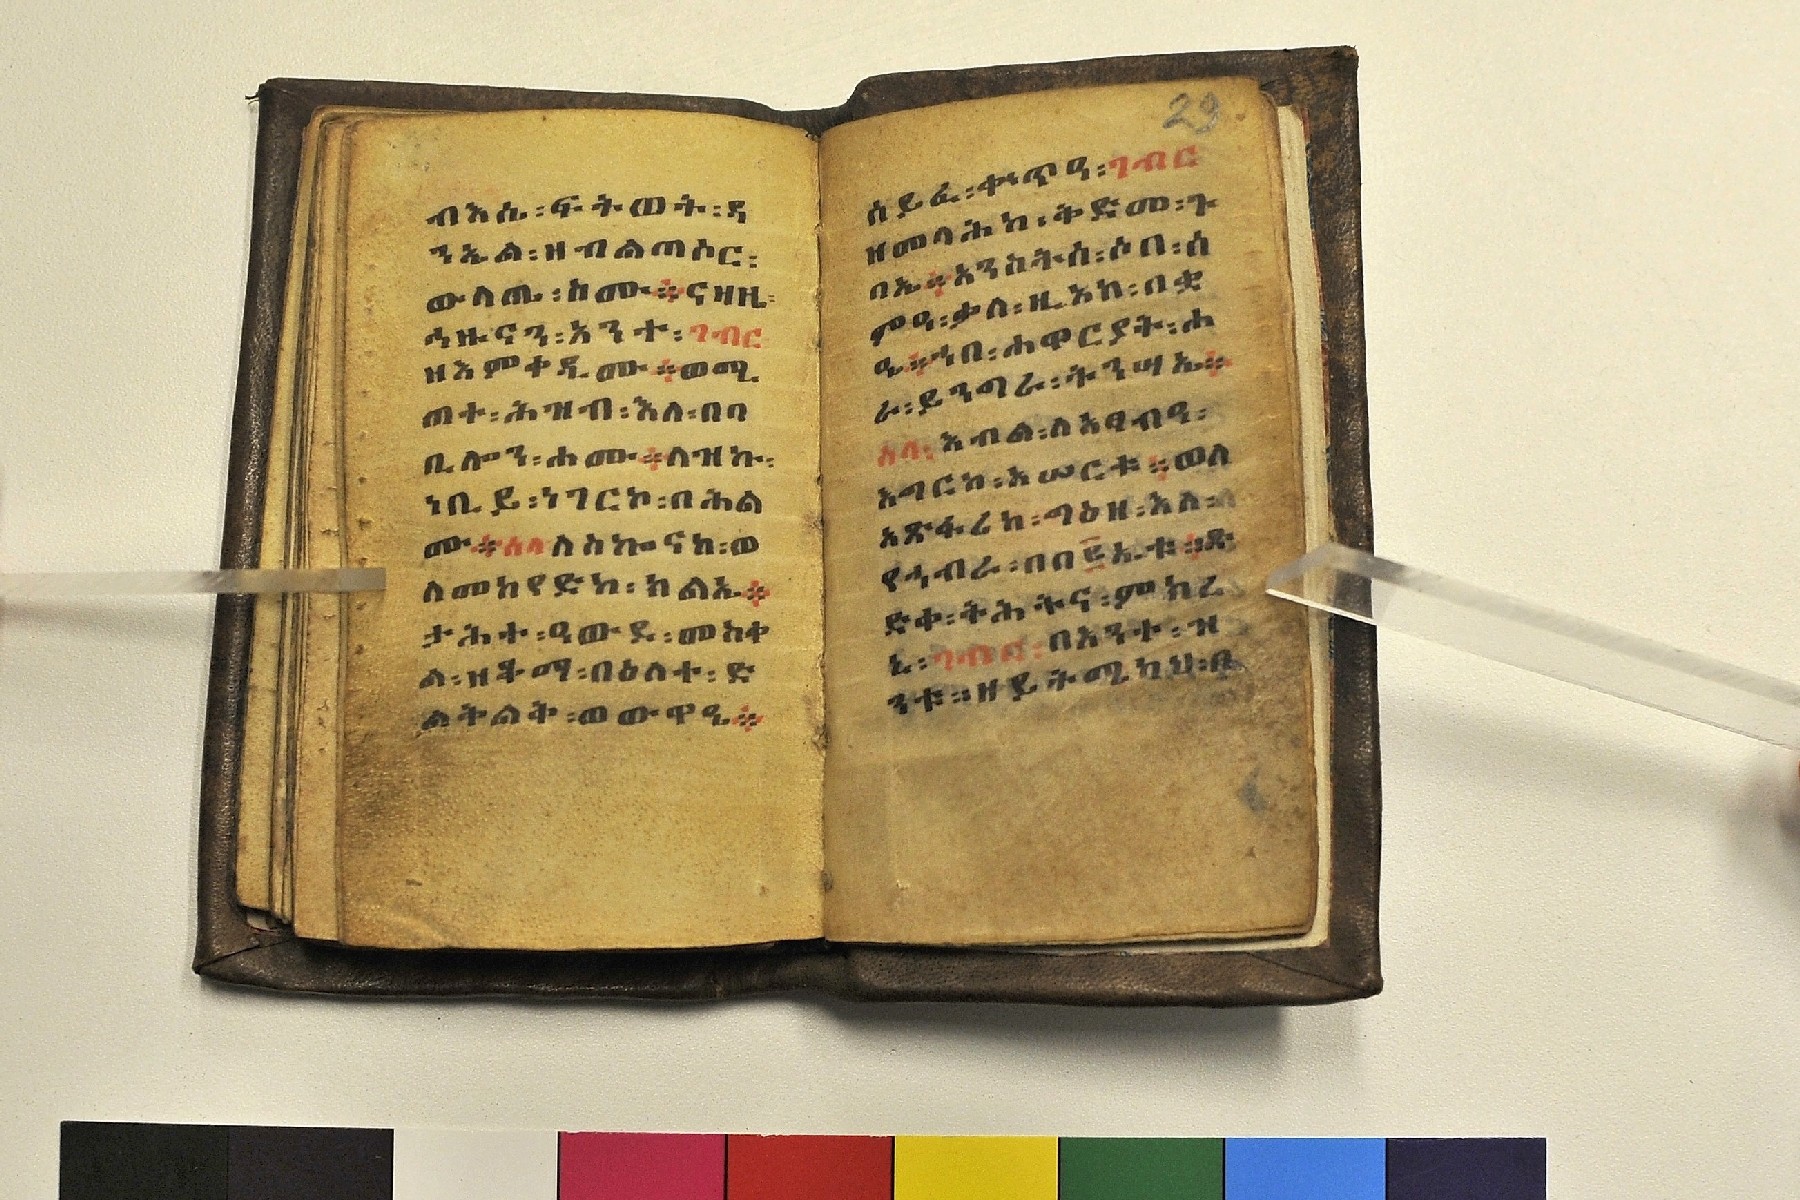 ብእሲ፡ፍትወት፡ዳ
ንኤል፡ዘብልጣሶር፡
ውላጤ፡ስሙ፨ናዛዚ፡
ኀዙናን፡አንተ፡ገብር
ዘእምቀዲሙ፨ወሚ
ጠተ፡ሕዝብ፡እለ፡በባ
ቢሎን፡ሐሙ፨ለዝኩ፡
ነቢይ፡ነገርኮ፡በሕል
ሙ፨ሰላለስኩናከ፡ወ
ለመከየድከ፡ክልኤ፨
ታሕተ፡ዓውደ፡መስቀ
ል፡ዝቶማ፡በዕለተ፡ድ
ልትልት፡ወውጥዒ፨
29
ሰይፈ፡ቀነጥዓ፡ገብር
ዘመላሕከ፡ቅድመ፡ጉ
ባኤ፨አንስትሰ፡ሶበ፡ሰ
ምዓ፡ቃለ፡ዚአከ፡በቋ
ዔ፨ኀበ፡ሐዋርያት፡ሐ
ራ፡ይንግራ፡ትንሣኤ፨
ሰላ፡እብል፡ለአፃብዓ፡
እግርከ፡አሠርቱ፨ወለ
አጽፋሪከ፡ግዕዘ፡እለ፡
የኀብራ፡በበ፭ኤቱ፨ጽ
ድቀ፡ትሕትና፡ምክረ
ኒ፡ገብር፡በአንተ፡ዝ
ንቱ፡ዘይትሜካህ፡